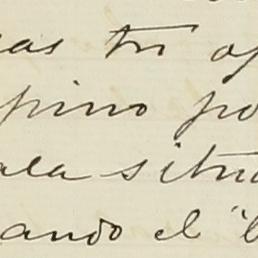 as tri op
pino po
ala situa
ando el "l